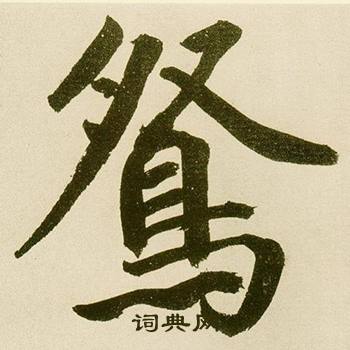 鴛
词典网